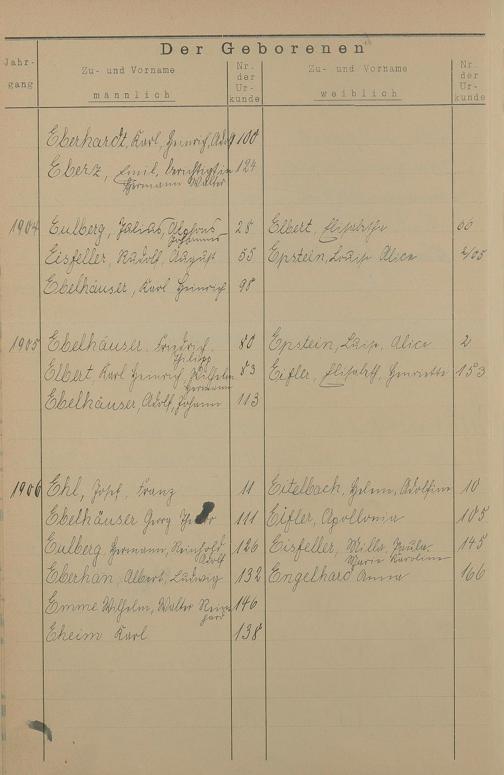 Der Geborenen
Jahr-
gang
Zu- und Vorname
männlich
Nr.
der
Ur-
kunde
Zu- und Vorname
weiblich
Nr.
der
Ur-
kunde
Eberhardt, Karl, Heinrich, Adolf 100
Eberz, Emil, berichtigt in 124
Hermann Walter
1904 Eulberg, Julius, Alphons 28 Elbert, Elisabetha 60
Johannes
Eisfeller, Rudolf, August 55 Epstein, Louise Alice 2/05
Ebelhäuser, Karl Heinrich 98
1905 Ebelhäuser, Friedrich 80 Epstein, Luise, Alice 2
Philipp
Elbert, Karl Heinrich, Wilhelm 83 Eifler, Elisabeth, Henriette 153
Hermann
Ebelhäuser, Adolf, Johann 113
1906 Ehl, Josef, Franz 11 Eitelbach, Adolfine 10
Ebelhäuser Georg 111 Eifler, Apollonia 105
Eulberg, Hermann, Reinhold 126 Eisfeller, Willa, Paula 145
Adolf Marie Karoline
Eberhan, Albert, Ludwig 132 Engelhard Anna 166
Emme Wilhelm, Walter Rein- 146
hard
Eheim Karl 138